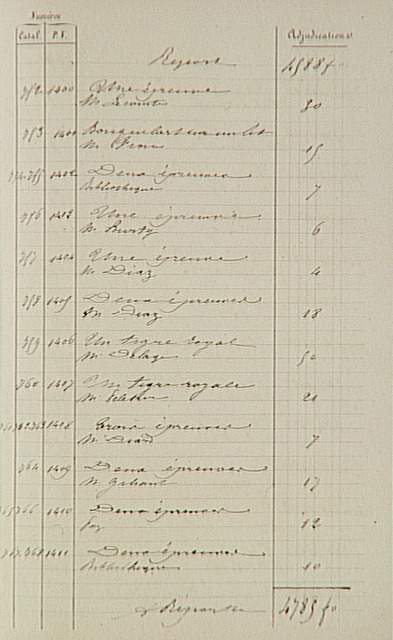 Numéros
Catal. P.V. Adjudications
Report 4588 fo
752 1400 Une épreuve
M. 30
753 1401 sur un lit
M. 15
754.755 1402 Deux épreuves
Bibliothèque 7
756 1403 Une épreuve
M. Burty 6
757 1404 Une épreuve
M. Diaz 4
758 1405 Deux épreuves
M. Diaz 18
759 1406 Un tigre royal
M. Delage 50
760 1407 Un tigre royale
M. 21
1408 Trois épreuves
M. 7
764 1409 Deux épreuves
M. 17
766 1410 Deux épreuves
12
768 1411 Deux épreuves
Bibliothèque 10
à Reporter 4785 fo